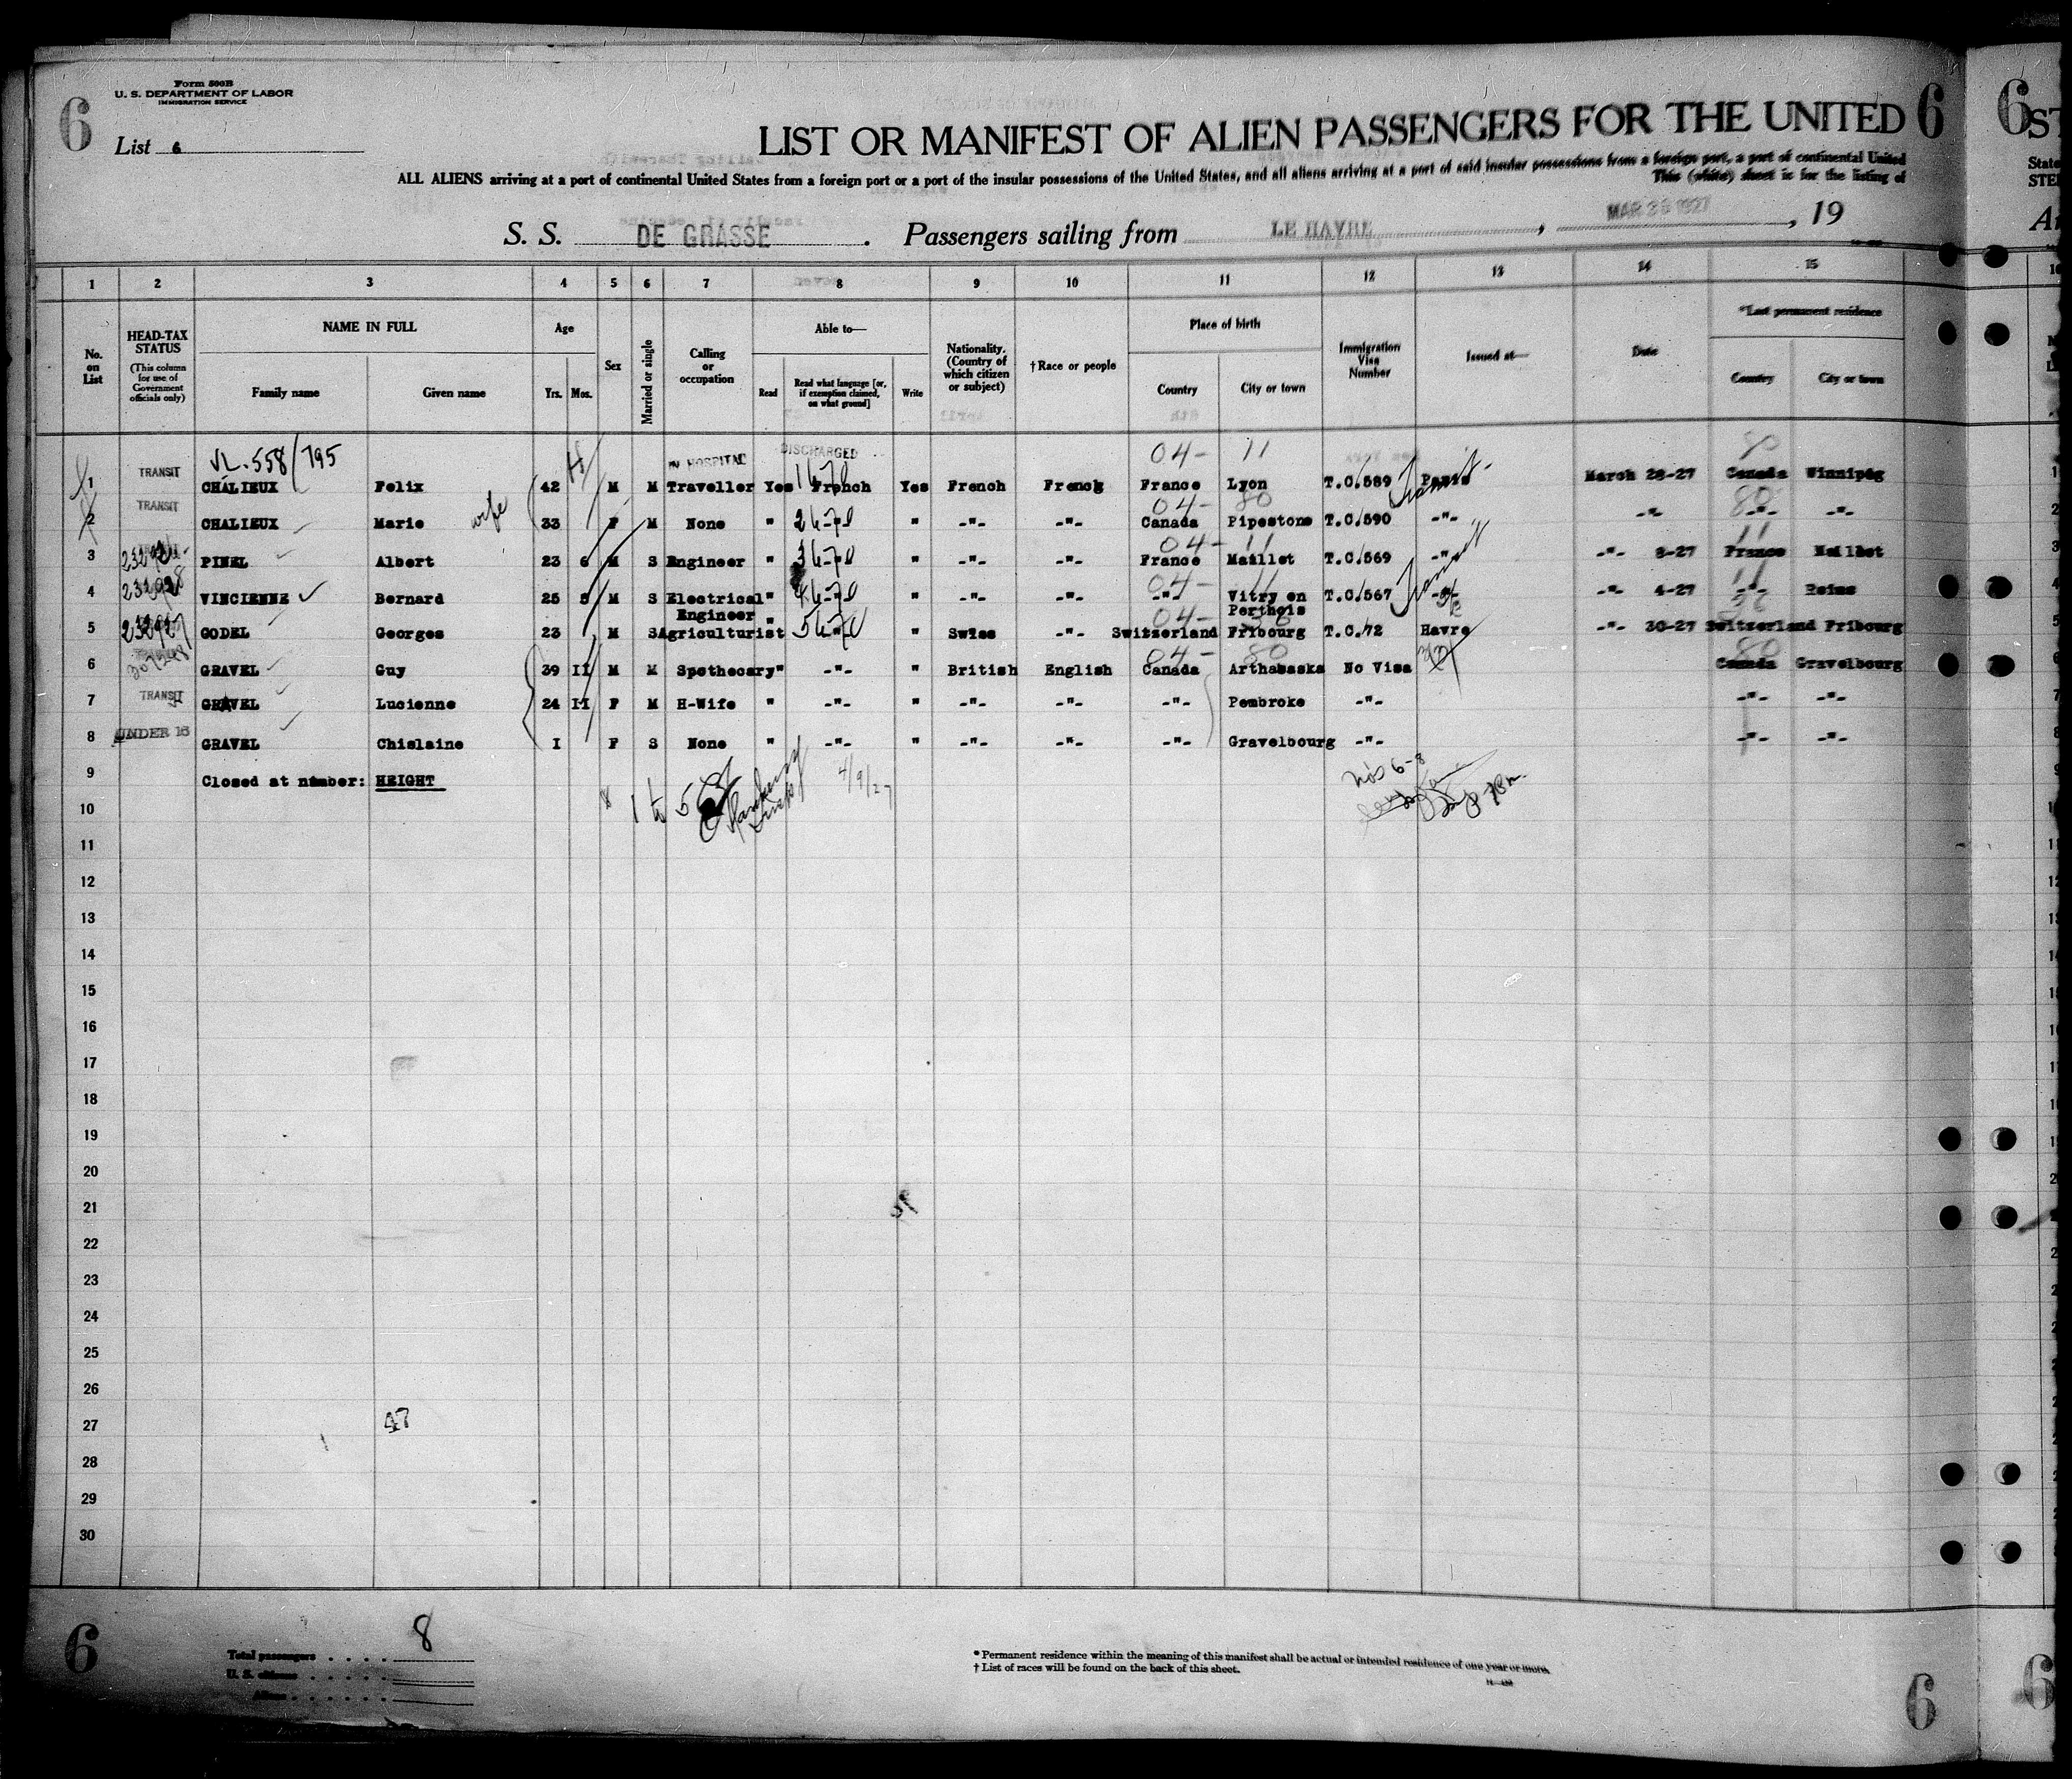 Form 500B
U. S. DEPARTMENT OF LABOR
IMMIGRATION SERVICE
6
List 6
LIST OR MANIFEST OF ALIEN PASSENGERS FOR THE UNITED
6
6
ST
ALL ALIENS arriving at a port of continental United States from a foreign port or a port of the insular possessions of the United States, and all aliens arriving at a port of said insular possessions from a foreign port, a port of continental United
This (white) sheet is for the listing of
State
S. S. DE GRASSE . Passengers sailing from LE HAVRE , MAR 30 1927 , 19
1 2 3 4 5 6 7 8 9 10 11 12 13 14 15
No. on List
HEAD-TAX STATUS
(This column for use of Government officials only)
NAME IN FULL
Family name Given name
Age
Yrs. Mos.
Sex
Married or single
Calling or occupation
Able to—
Read
Read what language [or, if exemption claimed, on what ground]
Write
Nationality. (Country of which citizen or subject)
†Race or people
Place of birth
Country City or town
Immigration Visa Number
Issued at—
Date
*Last permanent residence
Country City or town
VL.558/795
IN HOSPITAL DISCHARGED
04- 11
1 TRANSIT CHALIEUX Felix 42 M M Traveller Yes French Yes French French France Lyon T.C.589 Paris March 28-27 Canada Winnipeg
04- 80
2 TRANSIT CHALIEUX Marie wife 33 F M None " -"- " -"- -"- Canada Pipestone T.C.590 -"- -"- -"- -"-
04- 11
3 PINEL Albert 23 6 M S Engineer " -"- " -"- -"- France Maillet T.C.569 -"- -"- 8-27 France Maillet
04- 11
4 VINCIENNE Bernard 25 8 M S Electrical Engineer " -"- " -"- -"- -"- Vitry en Perthois T.C.567 -"- -"- 4-27 -"- Reims
04-
5 232927 GODEL Georges 23 M S Agriculturist " -"- " Swiss -"- Switzerland Fribourg T.C.72 Havre -"- 30-27 Switzerland Fribourg
04- 80
6 GRAVEL Guy 39 II M M Spothecary " -"- " British English Canada Arthabaska No Visa Canada Gravelbourg
7 TRANSIT GRAVEL Lucienne 24 II F M H-Wife " -"- " -"- -"- -"- Pembroke -"- -"- -"-
8 UNDER 16 GRAVEL Chislaine I F S None " -"- " -"- -"- -"- Gravelbourg -"- -"- -"-
9 Closed at number: HEIGHT
1 to 5
4/9/27
Nos 6-8
10
11
12
13
14
15
16
17
18
19
20
21
22
23
24
25
26
27
47
28
29
30
6
Total passengers . . . . 8
U. S. citizens . . . . .
Aliens . . . . . .
* Permanent residence within the meaning of this manifest shall be actual or intended residence of one year or more.
† List of races will be found on the back of this sheet.
6
6